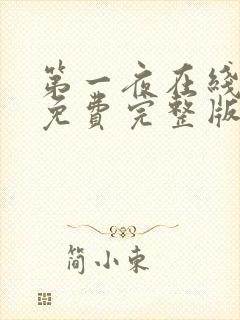 第一夜在线
免费完整版
简小束